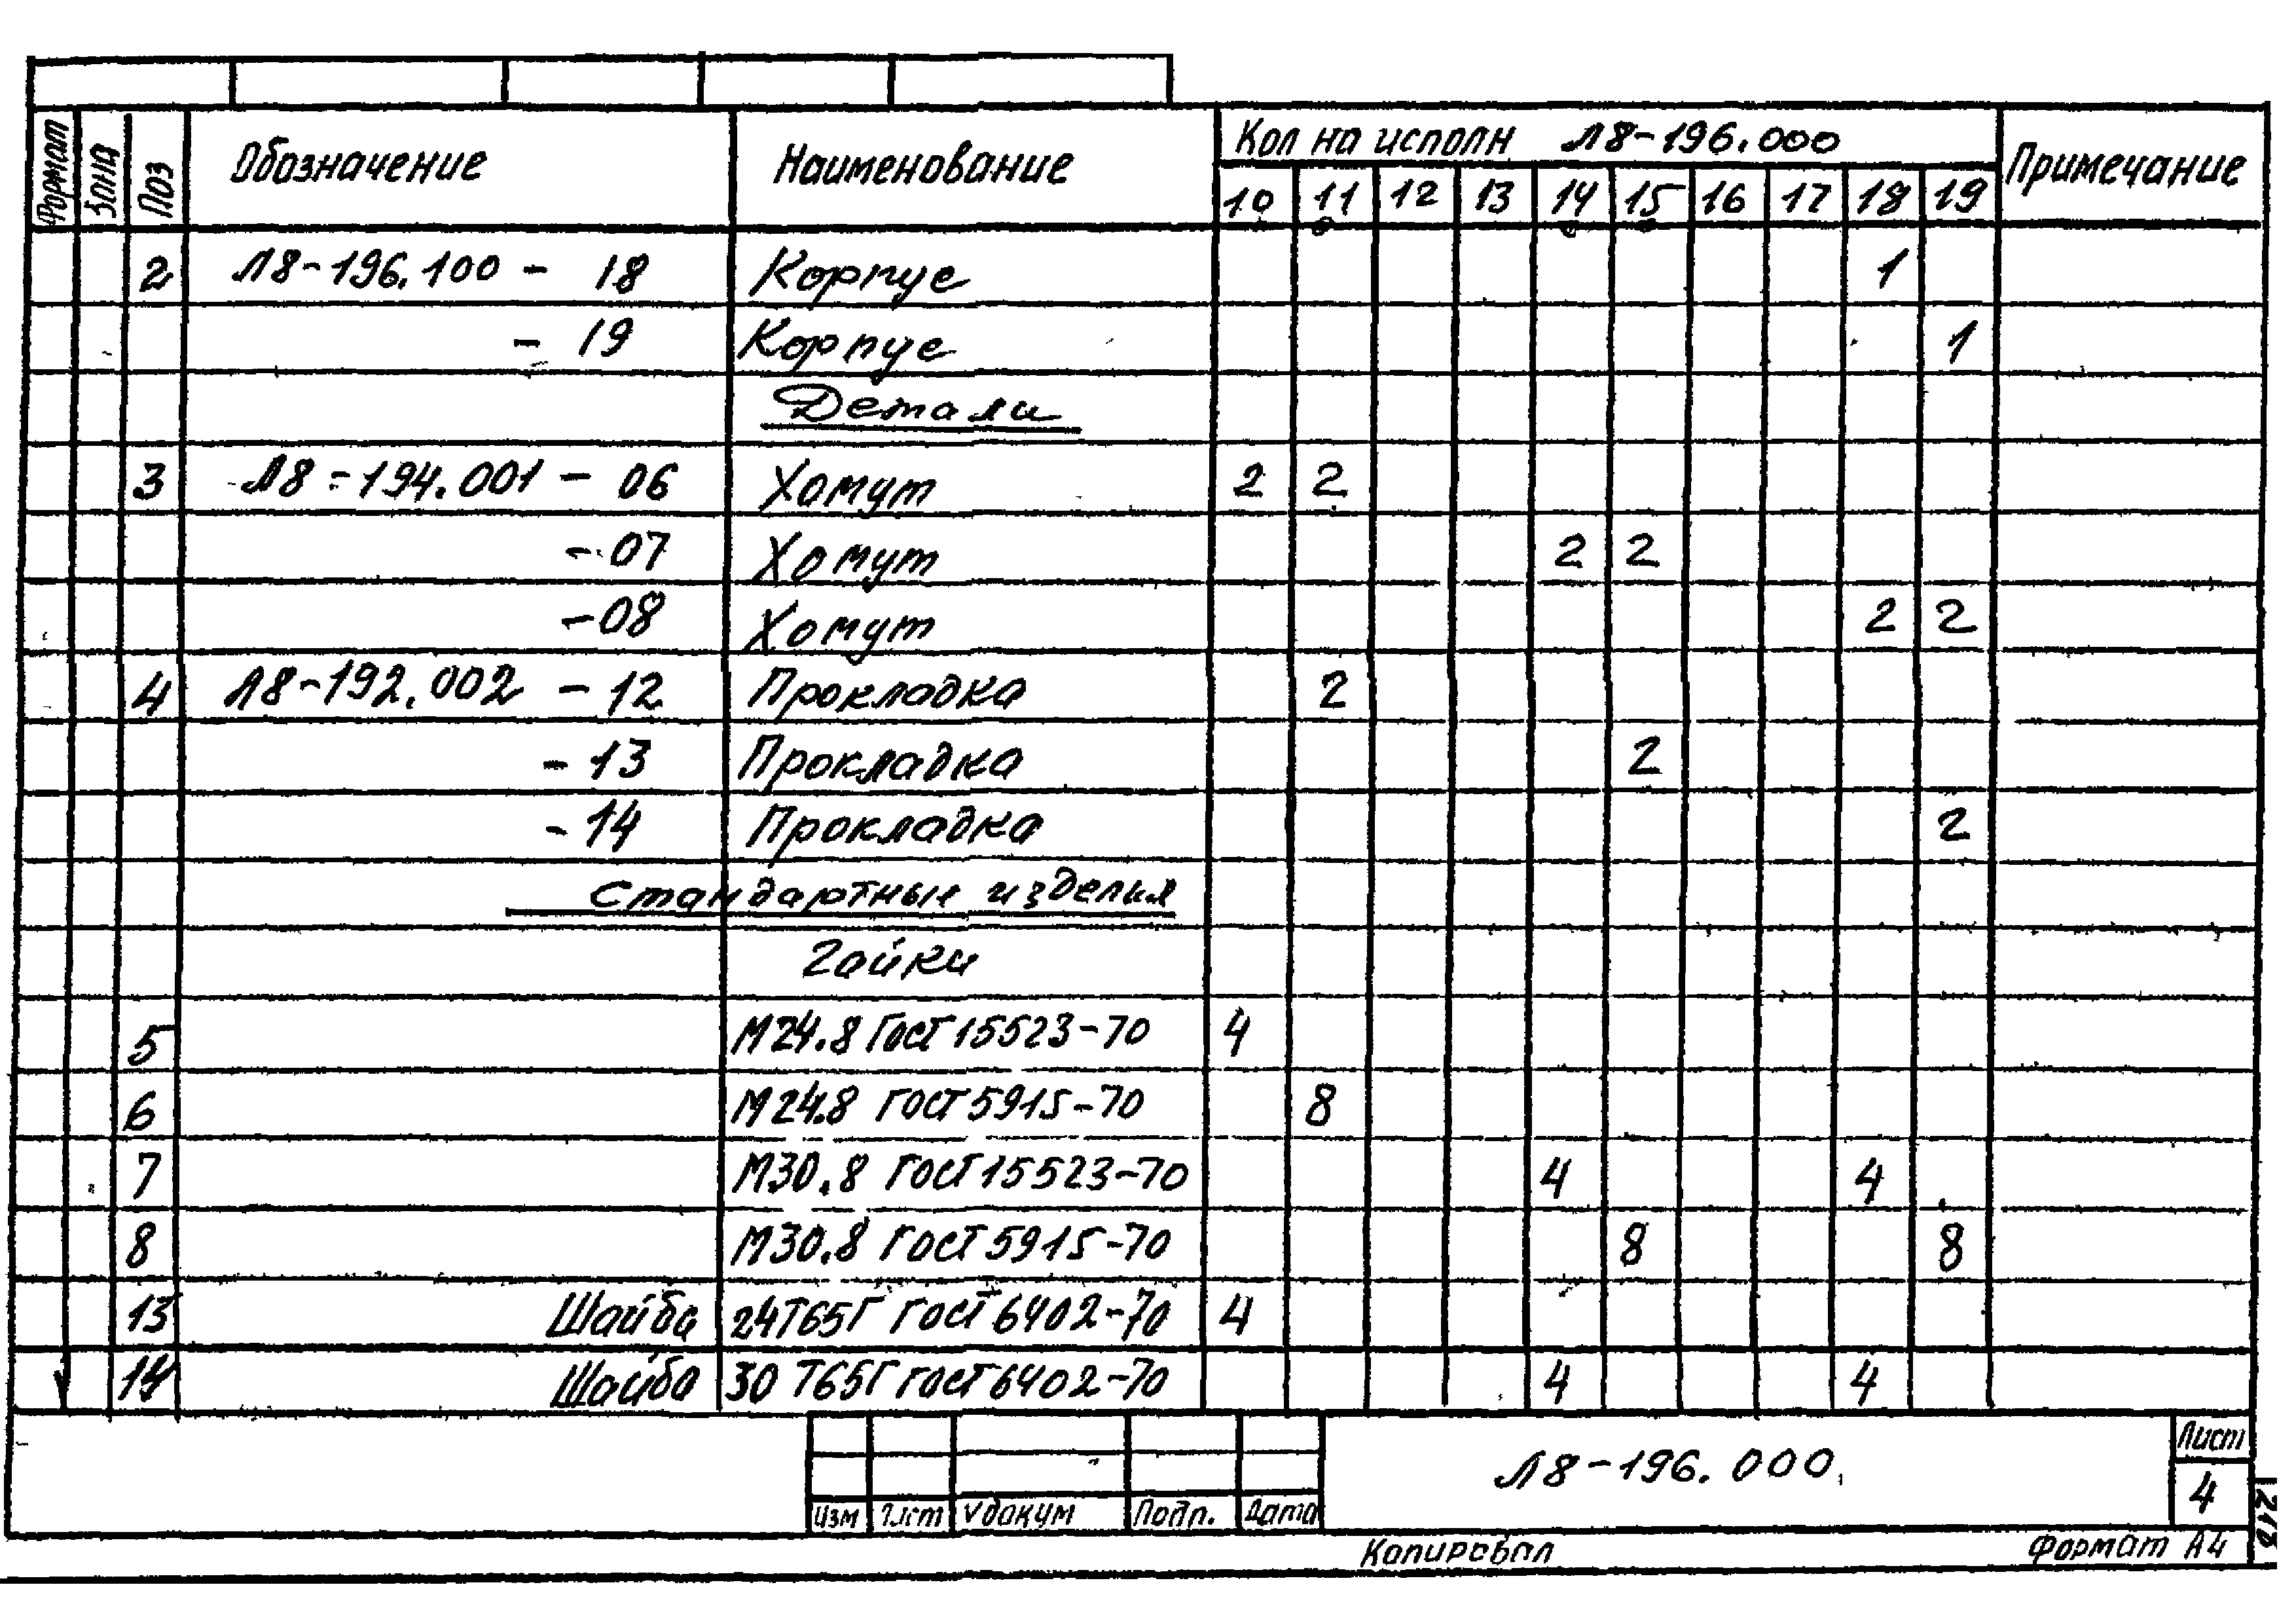 Формат Зона Поз Обозначение Наименование Кол на исполн Л8-196.000 Примечание
10 11 12 13 14 15 16 17 18 19
2 Л8-196.100 - 18 Корпус 1
- 19 Корпус 1
Детали
3 Л8-194.001 - 06 Хомут 2 2
- 07 Хомут 2 2
- 08 Хомут 2 2
4 Л8-192.002 - 12 Прокладка 2
- 13 Прокладка 2
- 14 Прокладка 2
Стандартные изделия
Гайки
5 М24.8 ГОСТ 15523-70 4
6 М24.8 ГОСТ 5915-70 8
7 М30.8 ГОСТ 15523-70 4 4
8 М30.8 ГОСТ 5915-70 8 8
13 Шайба 24Т65Г ГОСТ 6402-70 4
14 Шайба 30 Т65Г ГОСТ 6402-70 4 4
Л8-196.000 Лист
4
Изм Лист Подп. Дата
Копировал Формат А4